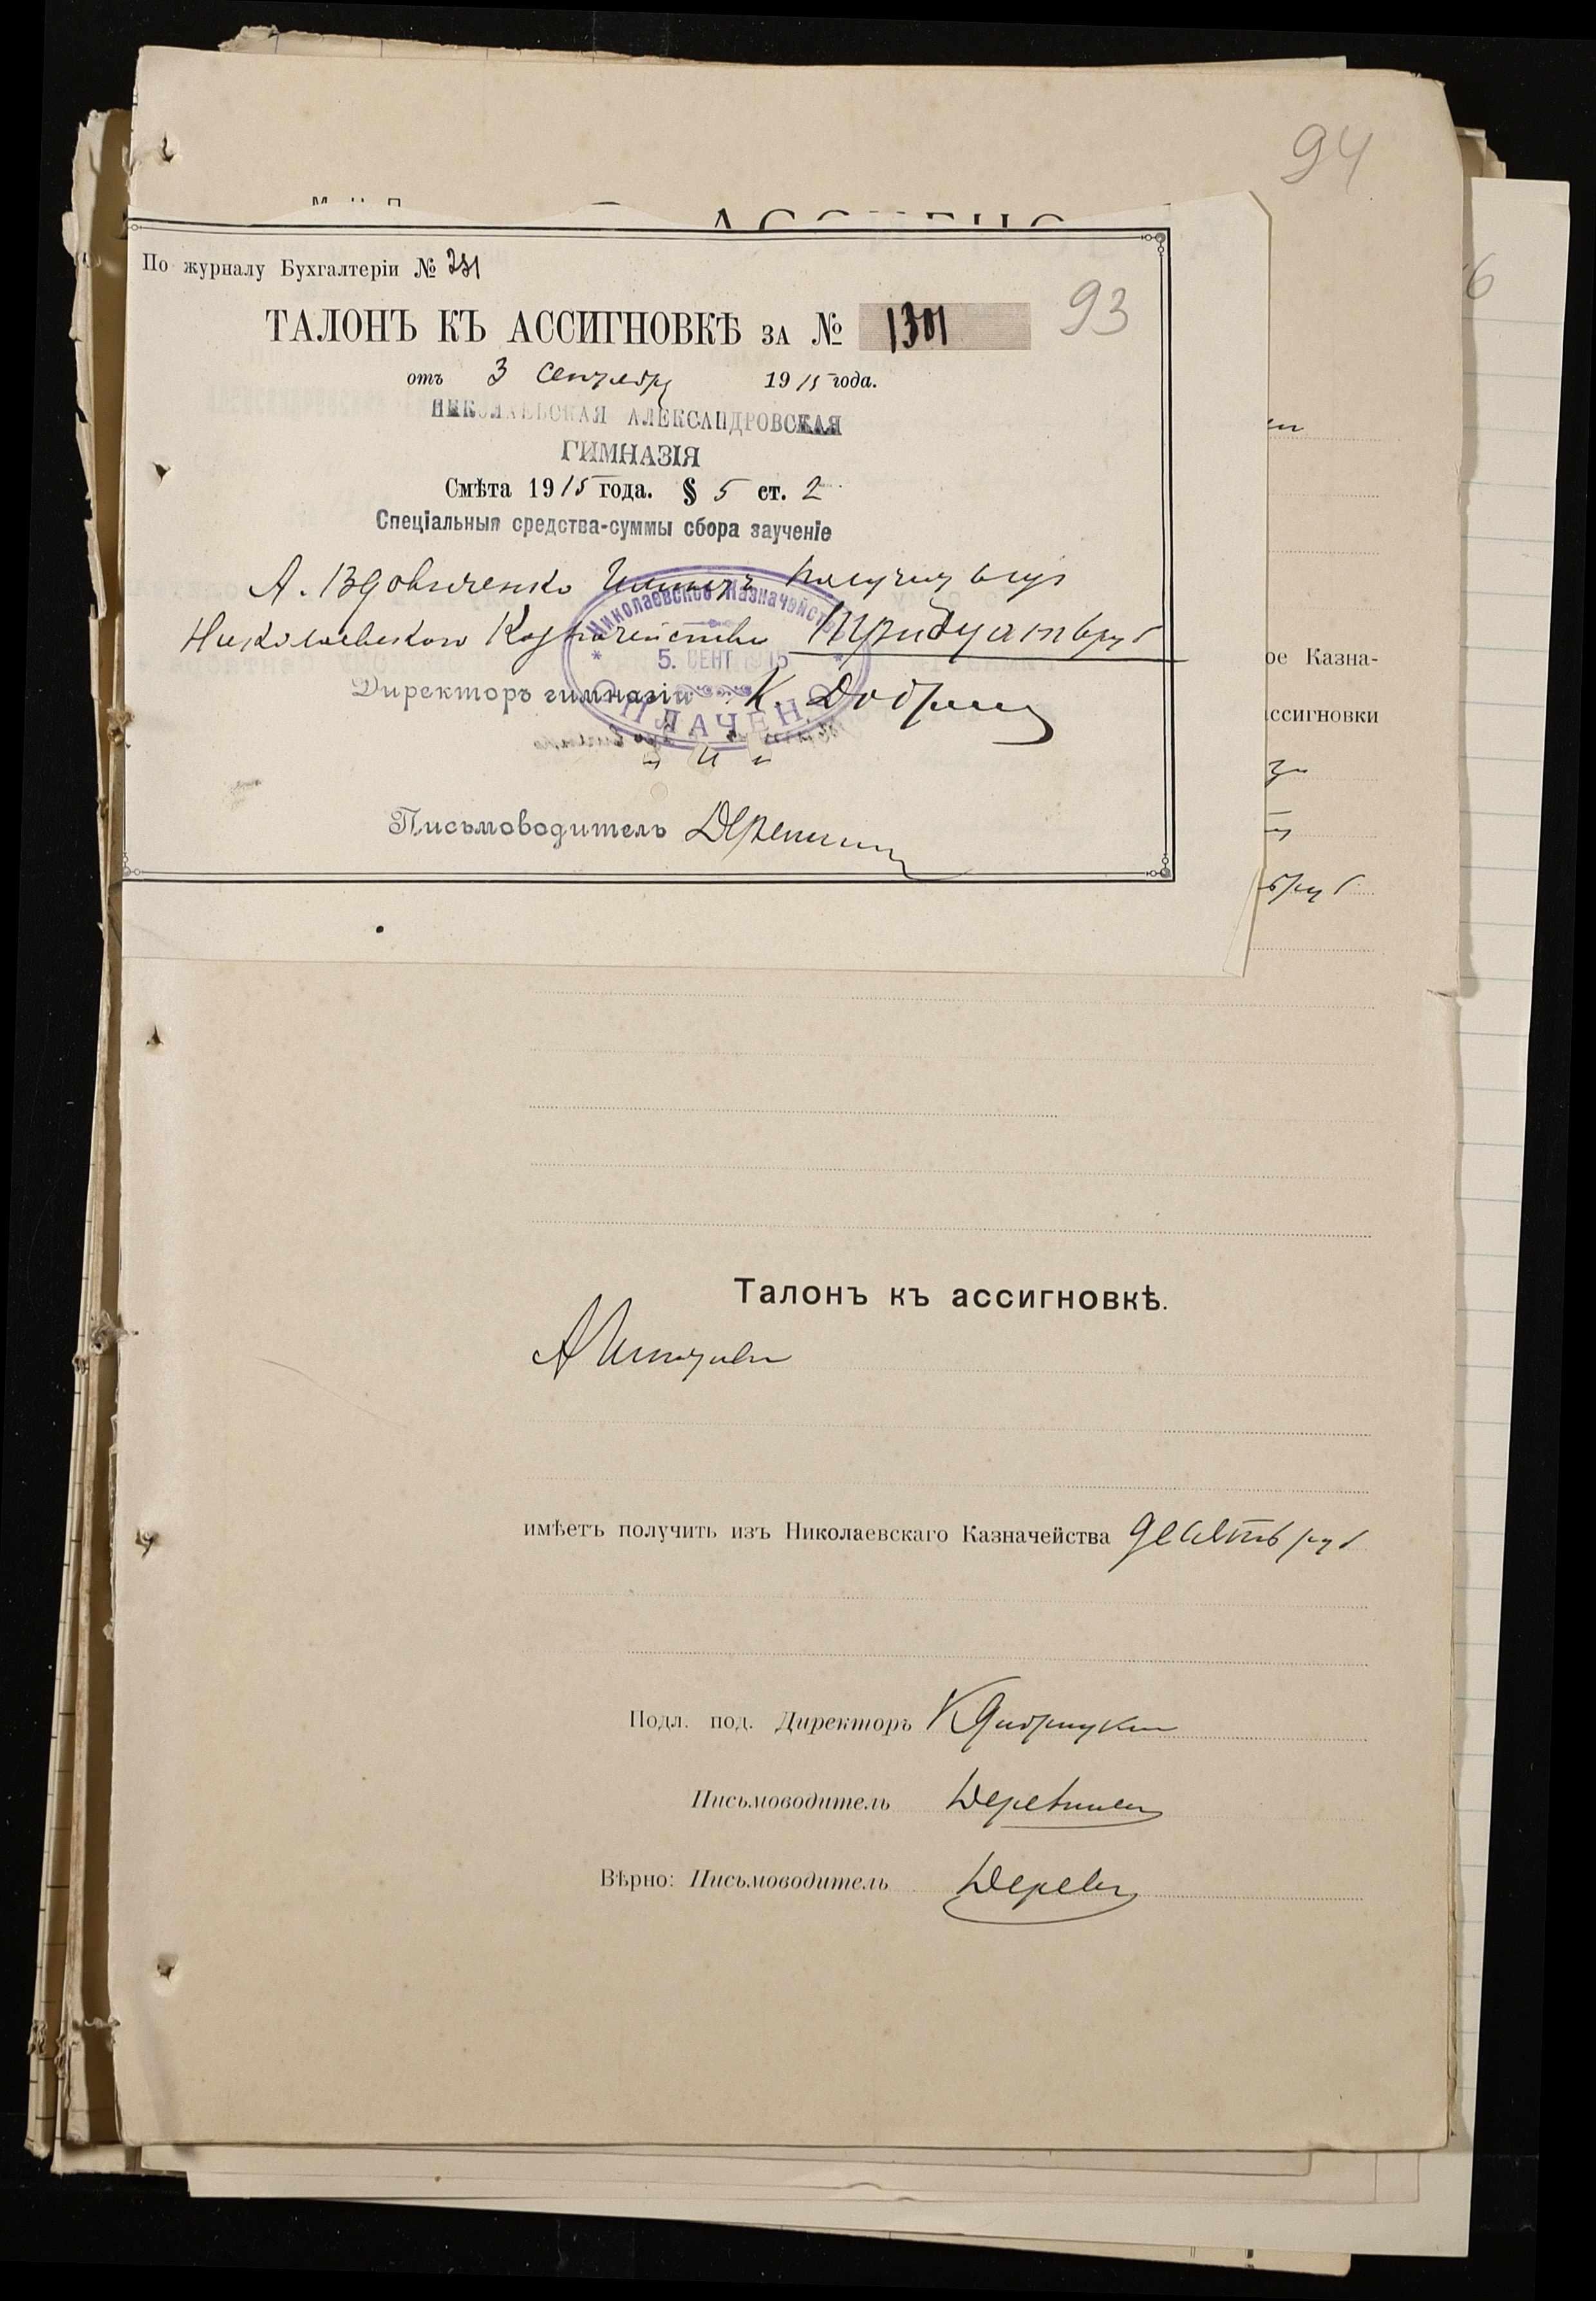 94
По журналу Бухгалтеріи №
ТАЛОНЪ КЪ АССИГНОВКѢ ЗА № 1301
93
отъ 3 Сентября 1915 года.
НИКОЛАЕВСКАЯ АЛЕКСАНДРОВСКАЯ
ГИМНАЗІЯ
Смѣта 1915 года. § 5 ст. 2
Спеціальныя средства-суммы сбора заученіе
А. Вдовиченко Имѣетъ получить изъ
Николаевскаго Казначейства Тридцать руб
Николаевское Казначейство
5. СЕНТ 1915
ОПЛАЧЕНО
Директоръ гимназіи К.
Письмоводитель
ре Казна-
ссигновки
руб
Талонъ къ ассигновкѣ.
имѣетъ получить изъ Николаевскаго Казначейства десять руб
Подл. под. Директоръ К
Письмоводитель
Вѣрно: Письмоводитель